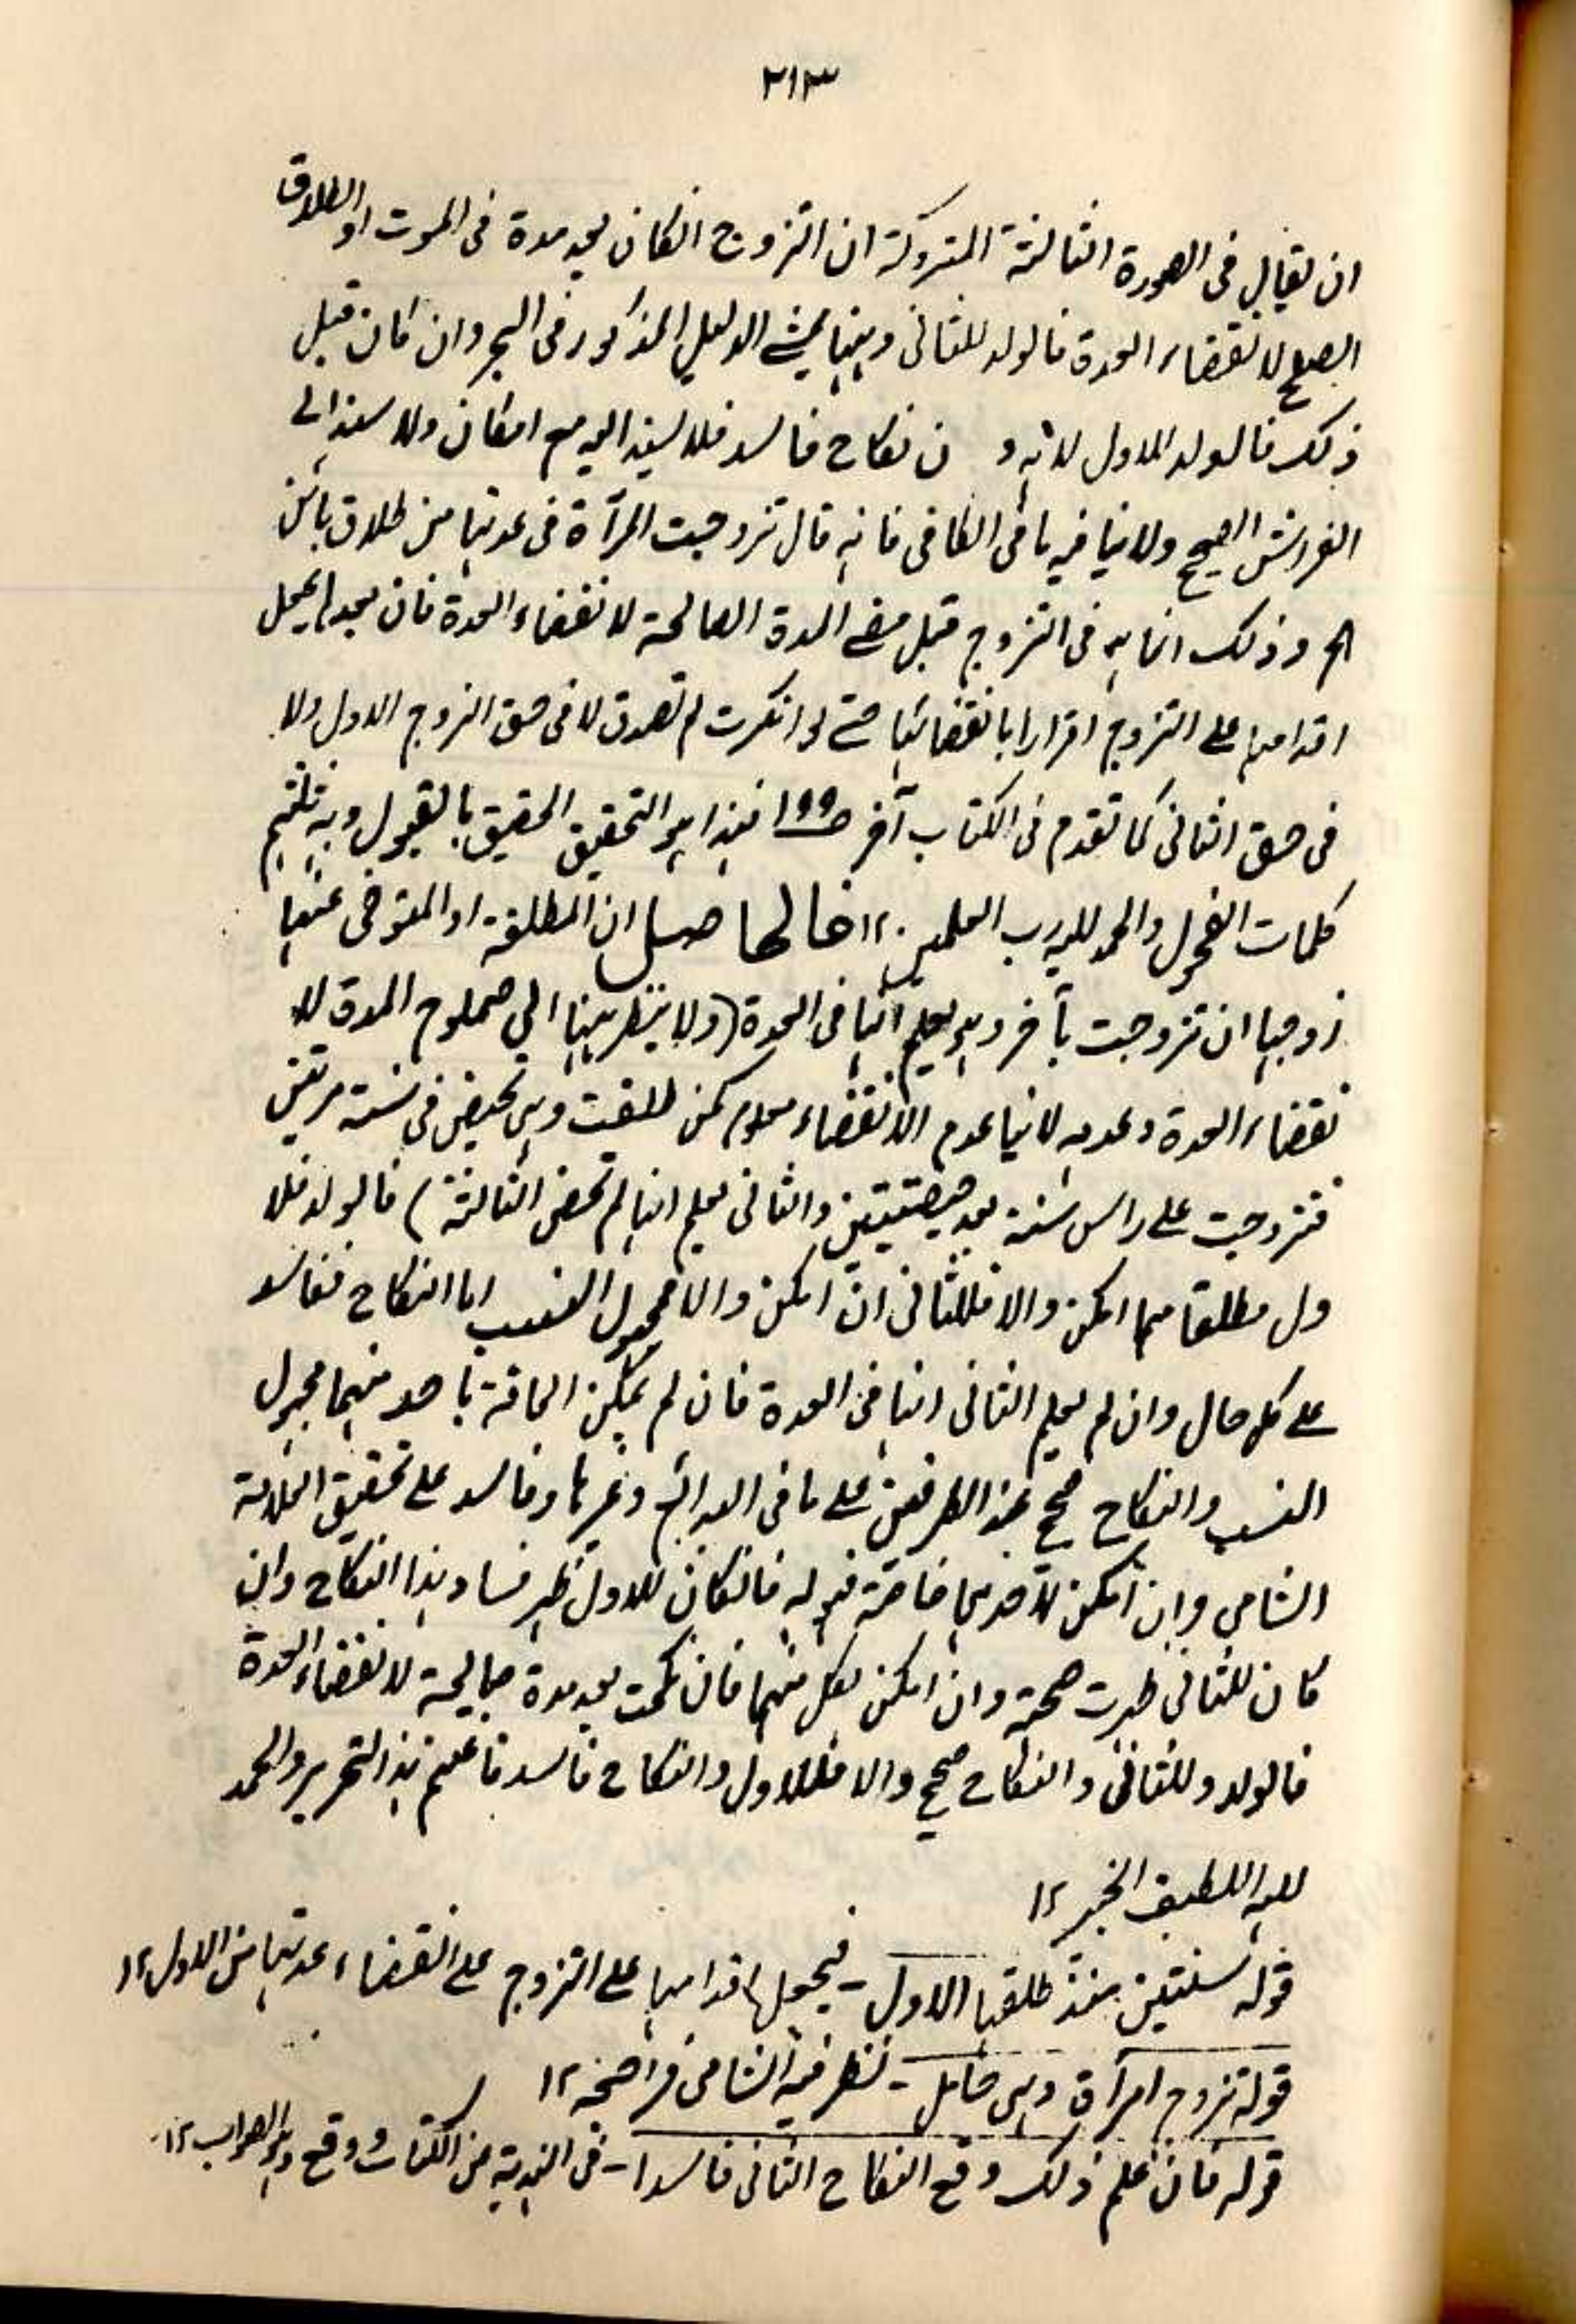 ٢١٣
ان يقال فى الصورة الثالثة المتروكة ان التزوج انكان بعد مدة فى الموت او الطلاق
تصلح لانقضاء العدة فالولد للثانى وبينها يمشے الدليل المذكور فى البحر وان كان قبل
ذلك فالولد للاول لانه و ن نكاح فاسد فلا يسند اليه مع امكان ولا سند الى
الفراش الصحيح ولا ينافيه ما فى الكافى فانه قال تزوجت المرآة فى عدتها من طلاق بائن
الخ وذلك انما هو فى التزوج قبل مضے المدة الصالحة لانقضاء العدة فان بعدها يجعل
اقدامها على التزوج اقرارا بانقضائها حتے لو انكرت لم تصدق لا فى حق الزوج الاول ولا
فى حق الثانى كما تقدم فى الكتاب آخر ص١٩٩ فهذا هو التحقيق الحقيق بالقبول وبه تلتئم
كلمات الفحول والحمد لله رب العلمين ١٢ فالحاصل ان المطلقة او المتوفى عنها
زوجها ان تزوجت بآخر وهو يعلم انها فى العدة (ولا ينظر ههنا الى صلوح المدة لا
نقضاء العدة وعدمه لانها عدم الانقضاء معلوم كمن طلقت وهى تحيض فى سنة مرتين
فتزوجت على راس سنة بعد حيضتين والثانى يعلم انها لم تحض الثالثة) فالولد فللا
ول مطلقا مهما امكن والا فللثانى ان امكن والا مجهول النسب اما النكاح ففاسد
على كل حال وان لم يعلم الثانى انها فى العدة فان لم يمكن الحاقه باحد منهما مجهول
النسب والنكاح صحيح عند الطرفين على ما فى البدائع وغيرها وفاسد على تحقيق العلامة
الشامى وان امكن لاحدهما خاصة فهو له فانكان للاول ظهر فساد هذا النكاح وان
كان للثانى ظهرت صحته وان امكن لكل منهما فان نكحت بعد مدة صالحة لانقضاء العدة
فالولد وللثانى والنكاح صحيح والا فللاول والنكاح فاسد فاغتنم هذا التحرير والحمد
لله اللطيف الخبير ١٢
قوله لسنتين منذ طلقها الاول - فيجعل اقدامها على التزوج على انقضاء عدتها من الاول ١٢
قوله تزوج امرآة وهى حامل - نظر فيه الشامى فراجعه ١٢
قوله فان علم ذلك وقع النكاح الثانى فاسدا - فى الهندية من الكتاب وقع وهو الصواب ١٢